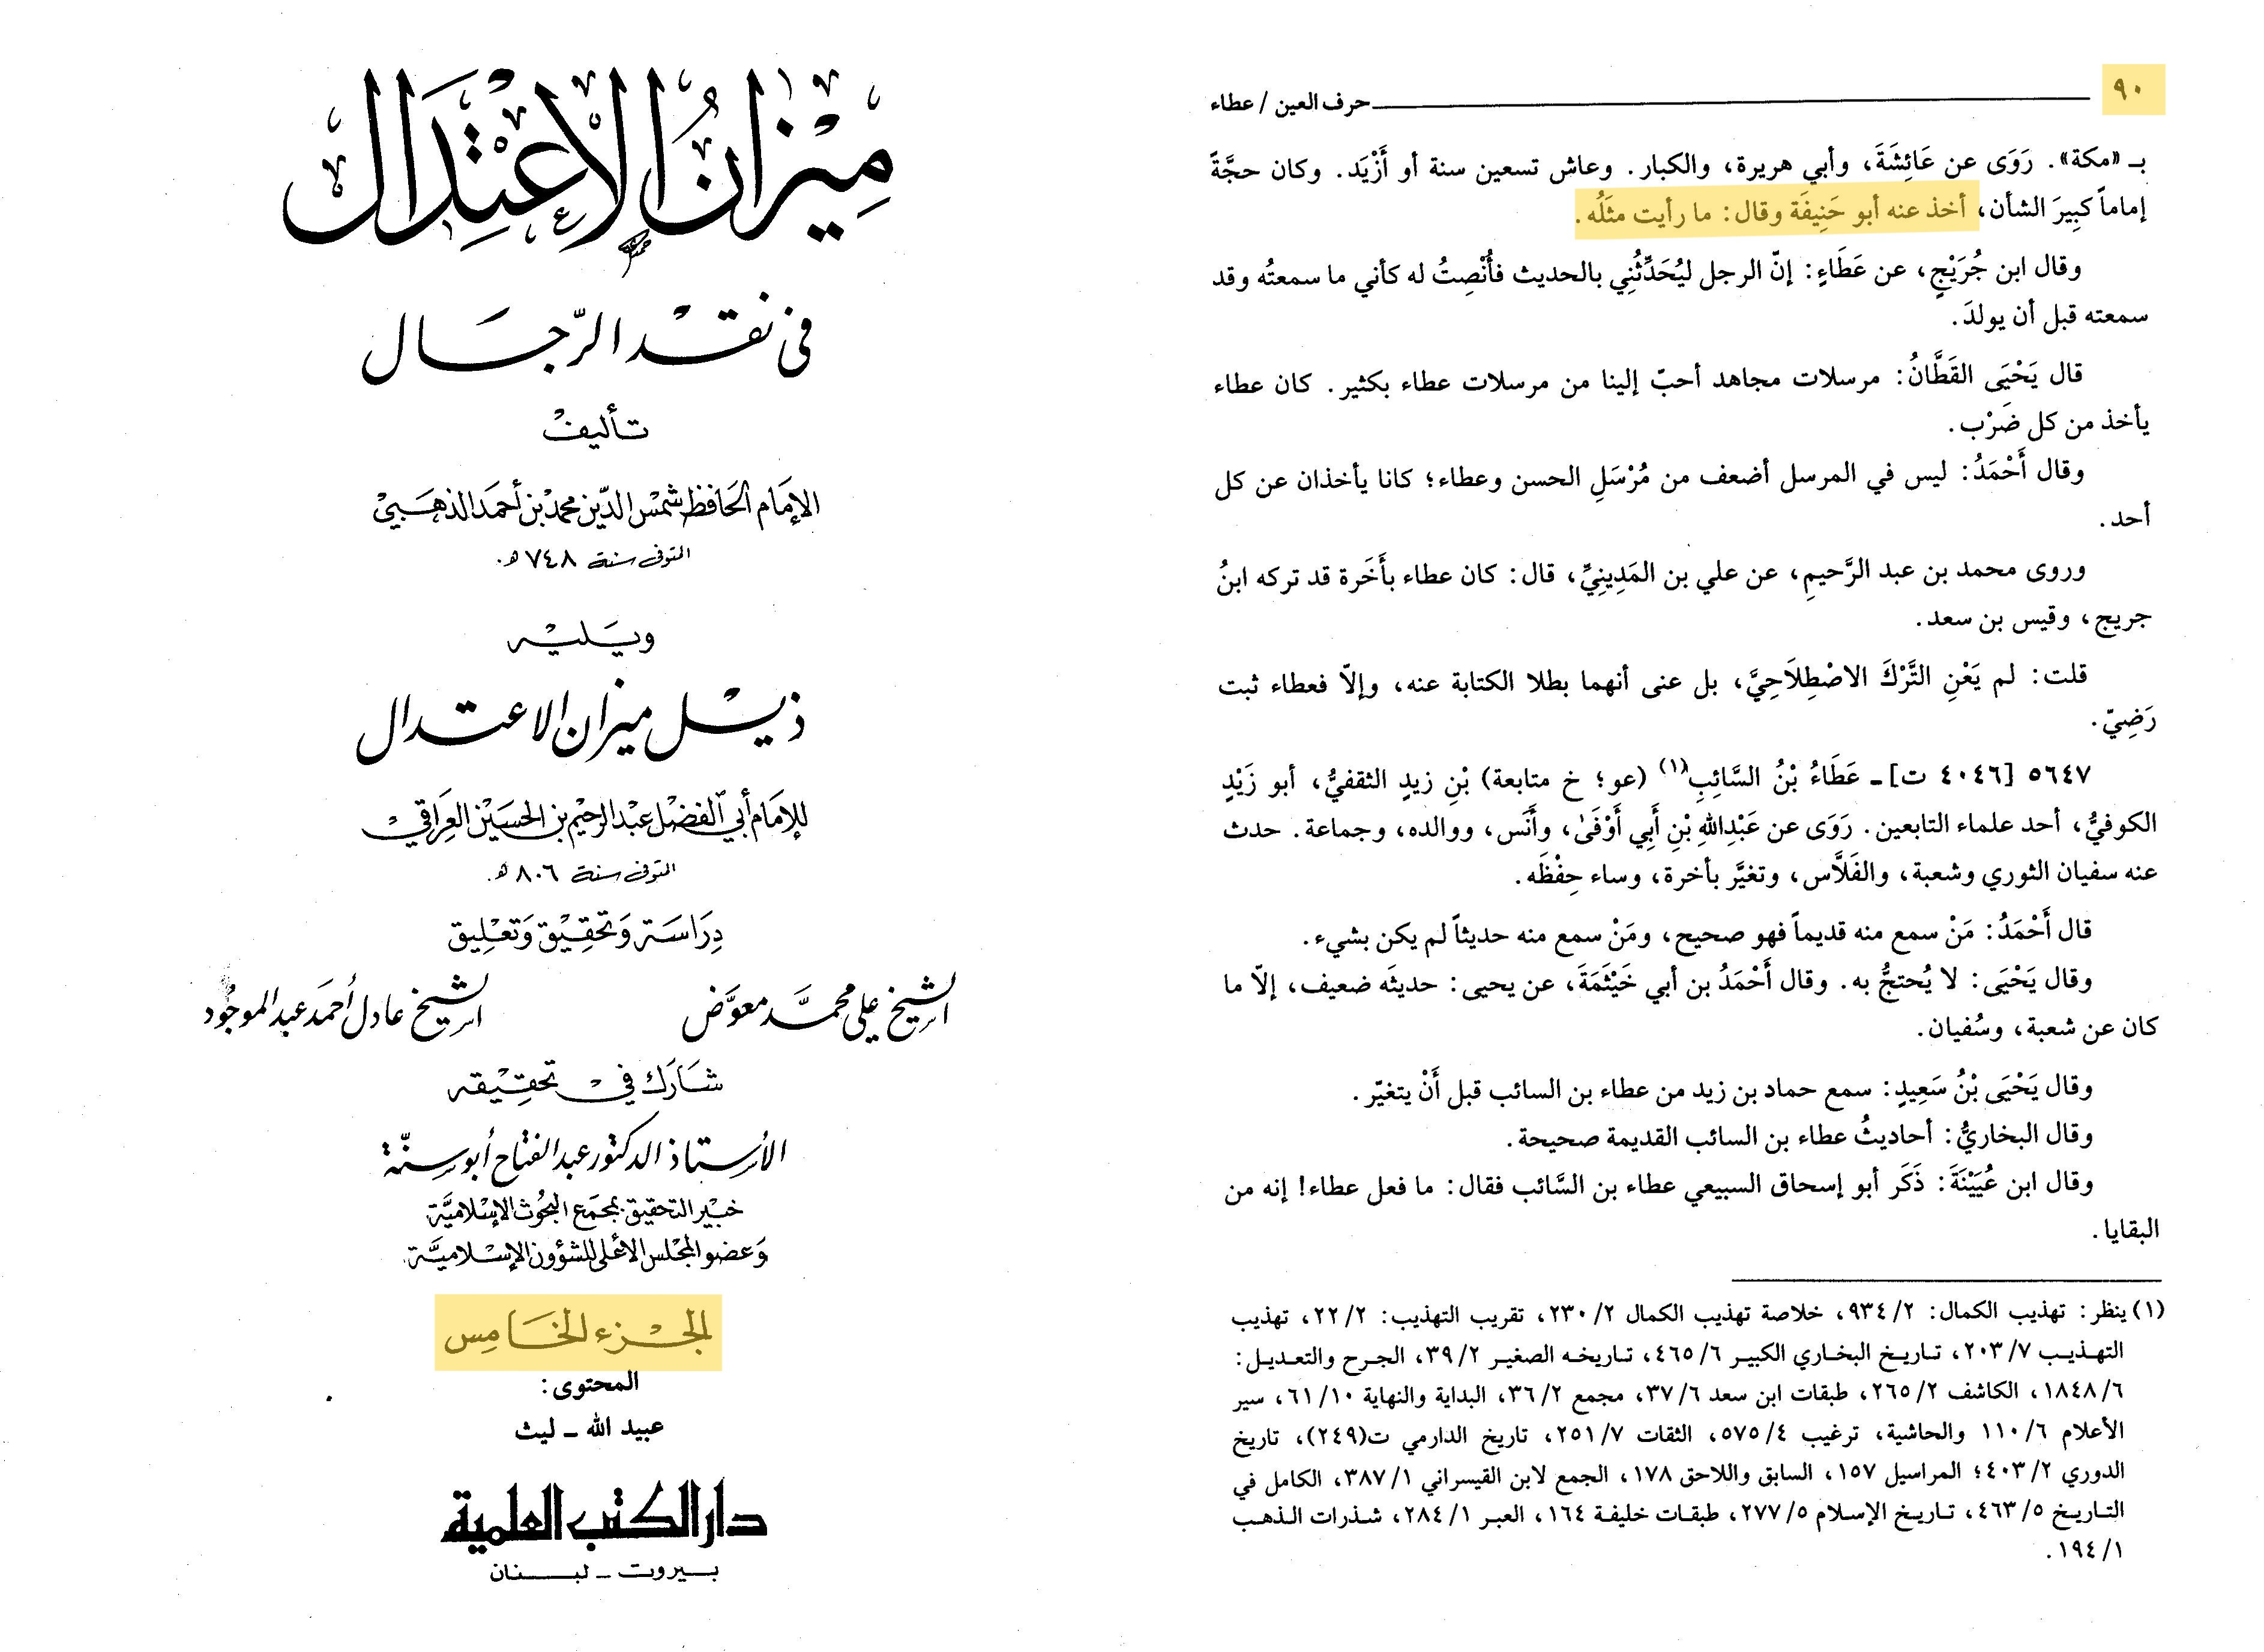 ميزان الاعتدال
في نقد الرجال
تأليف
الإمام الحافظ شمس الدين محمد بن أحمد الذهبي
المتوفى سنة ٧٤٨ هـ.
ويليه
ذيل ميزان الاعتدال
للإمام أبي الفضل عبد الرحيم بن الحسين العراقي
المتوفى سنة ٨٠٦ هـ.
دراسة وتحقيق وتعليق
الشيخ علي محمد معوض الشيخ عادل أحمد عبد الموجود
شارك في تحقيقه
الأستاذ الدكتور عبد الفتاح أبو سنة
خبير التحقيق بمجمع البحوث الإسلامية
وعضو المجلس الأعلى للشؤون الإسلامية
الجزء الخامس
المحتوى:
عبيد الله ـ ليث
دار الكتب العلمية
بيروت ـ لبنان
٩٠ حرف العين / عطاء
بـ «مكة». رَوَى عن عَائِشَةَ، وأبي هريرة، والكبار. وعاش تسعين سنة أو أَزْيَد. وكان حجَّةً
إماماً كبِيرَ الشأن، أخذ عنه أبو حَنِيفَة وقال: ما رأيت مثلَه.
وقال ابن جُرَيْجٍ، عن عَطَاءٍ: إنّ الرجل ليُحَدِّثُنِي بالحديث فأُنْصِتُ له كأني ما سمعتُه وقد
سمعته قبل أن يولدَ.
قال يَحْيَى القَطَّانُ: مرسلات مجاهد أحبّ إلينا من مرسلات عطاء بكثير. كان عطاء
يأخذ من كل ضَرْب.
وقال أَحْمَدُ: ليس في المرسل أضعف من مُرْسَلِ الحسن وعطاء؛ كانا يأخذان عن كل
أحد.
وروى محمد بن عبد الرَّحيمِ، عن علي بن المَدِينِيِّ، قال: كان عطاء بأَخَرة قد تركه ابنُ
جريج، وقيس بن سعد.
قلت: لم يَعْنِ التَّرْكَ الاصْطِلَاحِيَّ، بل عنى أنهما بطلا الكتابة عنه، وإلّا فعطاء ثبت
رَضِيّ.
٥٦٤٧ [٤٠٤٦ ت] ـ عَطَاءُ بْنُ السَّائِبِ(١) (عو؛ خ متابعة) بْنِ زيدٍ الثقفيُّ، أبو زَيْدٍ
الكوفيُّ، أحد علماء التابعين. رَوَى عن عَبْدِاللهِ بْنِ أَبِي أَوْفَىٰ، وأَنَس، ووالده، وجماعة. حدث
عنه سفيان الثوري وشعبة، والفَلاَّس، وتغيَّر بأخرة، وساء حِفْظَه.
قال أَحْمَدُ: مَنْ سمع منه قديماً فهو صحيح، ومَنْ سمع منه حديثاً لم يكن بشيء.
وقال يَحْيَى: لا يُحتجُّ به. وقال أَحْمَدُ بن أبي خَيْثَمَةَ، عن يحيى: حديثَه ضعيف، إلّا ما
كان عن شعبة، وسُفيان.
وقال يَحْيَى بْنُ سَعِيدٍ: سمع حماد بن زيد من عطاء بن السائب قبل أَنْ يتغيّر.
وقال البخاريُّ: أحاديثُ عطاء بن السائب القديمة صحيحة.
وقال ابن عُيَيْنَةَ: ذَكَر أبو إسحاق السبيعي عطاء بن السَّائب فقال: ما فعل عطاء! إنه من
البقايا.
(١) ينظر: تهذيب الكمال: ٩٣٤/٢، خلاصة تهذيب الكمال ٢٣٠/٢، تقريب التهذيب: ٢٢/٢، تهذيب
التهذيب ٢٠٣/٧، تاريخ البخاري الكبير ٤٦٥/٦، تاريخه الصغير ٣٩/٢، الجرح والتعديل:
١٨٤٨/٦، الكاشف ٢٦٥/٢، طبقات ابن سعد ٣٧/٦، مجمع ٣٦/٢، البداية والنهاية ٦١/١٠، سير
الأعلام ١١٠/٦ والحاشية، ترغيب ٥٧٥/٤، الثقات ٢٥١/٧، تاريخ الدارمي ت(٢٤٩)، تاريخ
الدوري ٤٠٣/٢؛ المراسيل ١٥٧، السابق واللاحق ١٧٨، الجمع لابن القيسراني ٣٨٧/١، الكامل في
التاريخ ٤٦٣/٥، تاريخ الإسلام ٢٧٧/٥، طبقات خليفة ١٦٤، العبر ٢٨٤/١، شذرات الذهب
١٩٤/١.